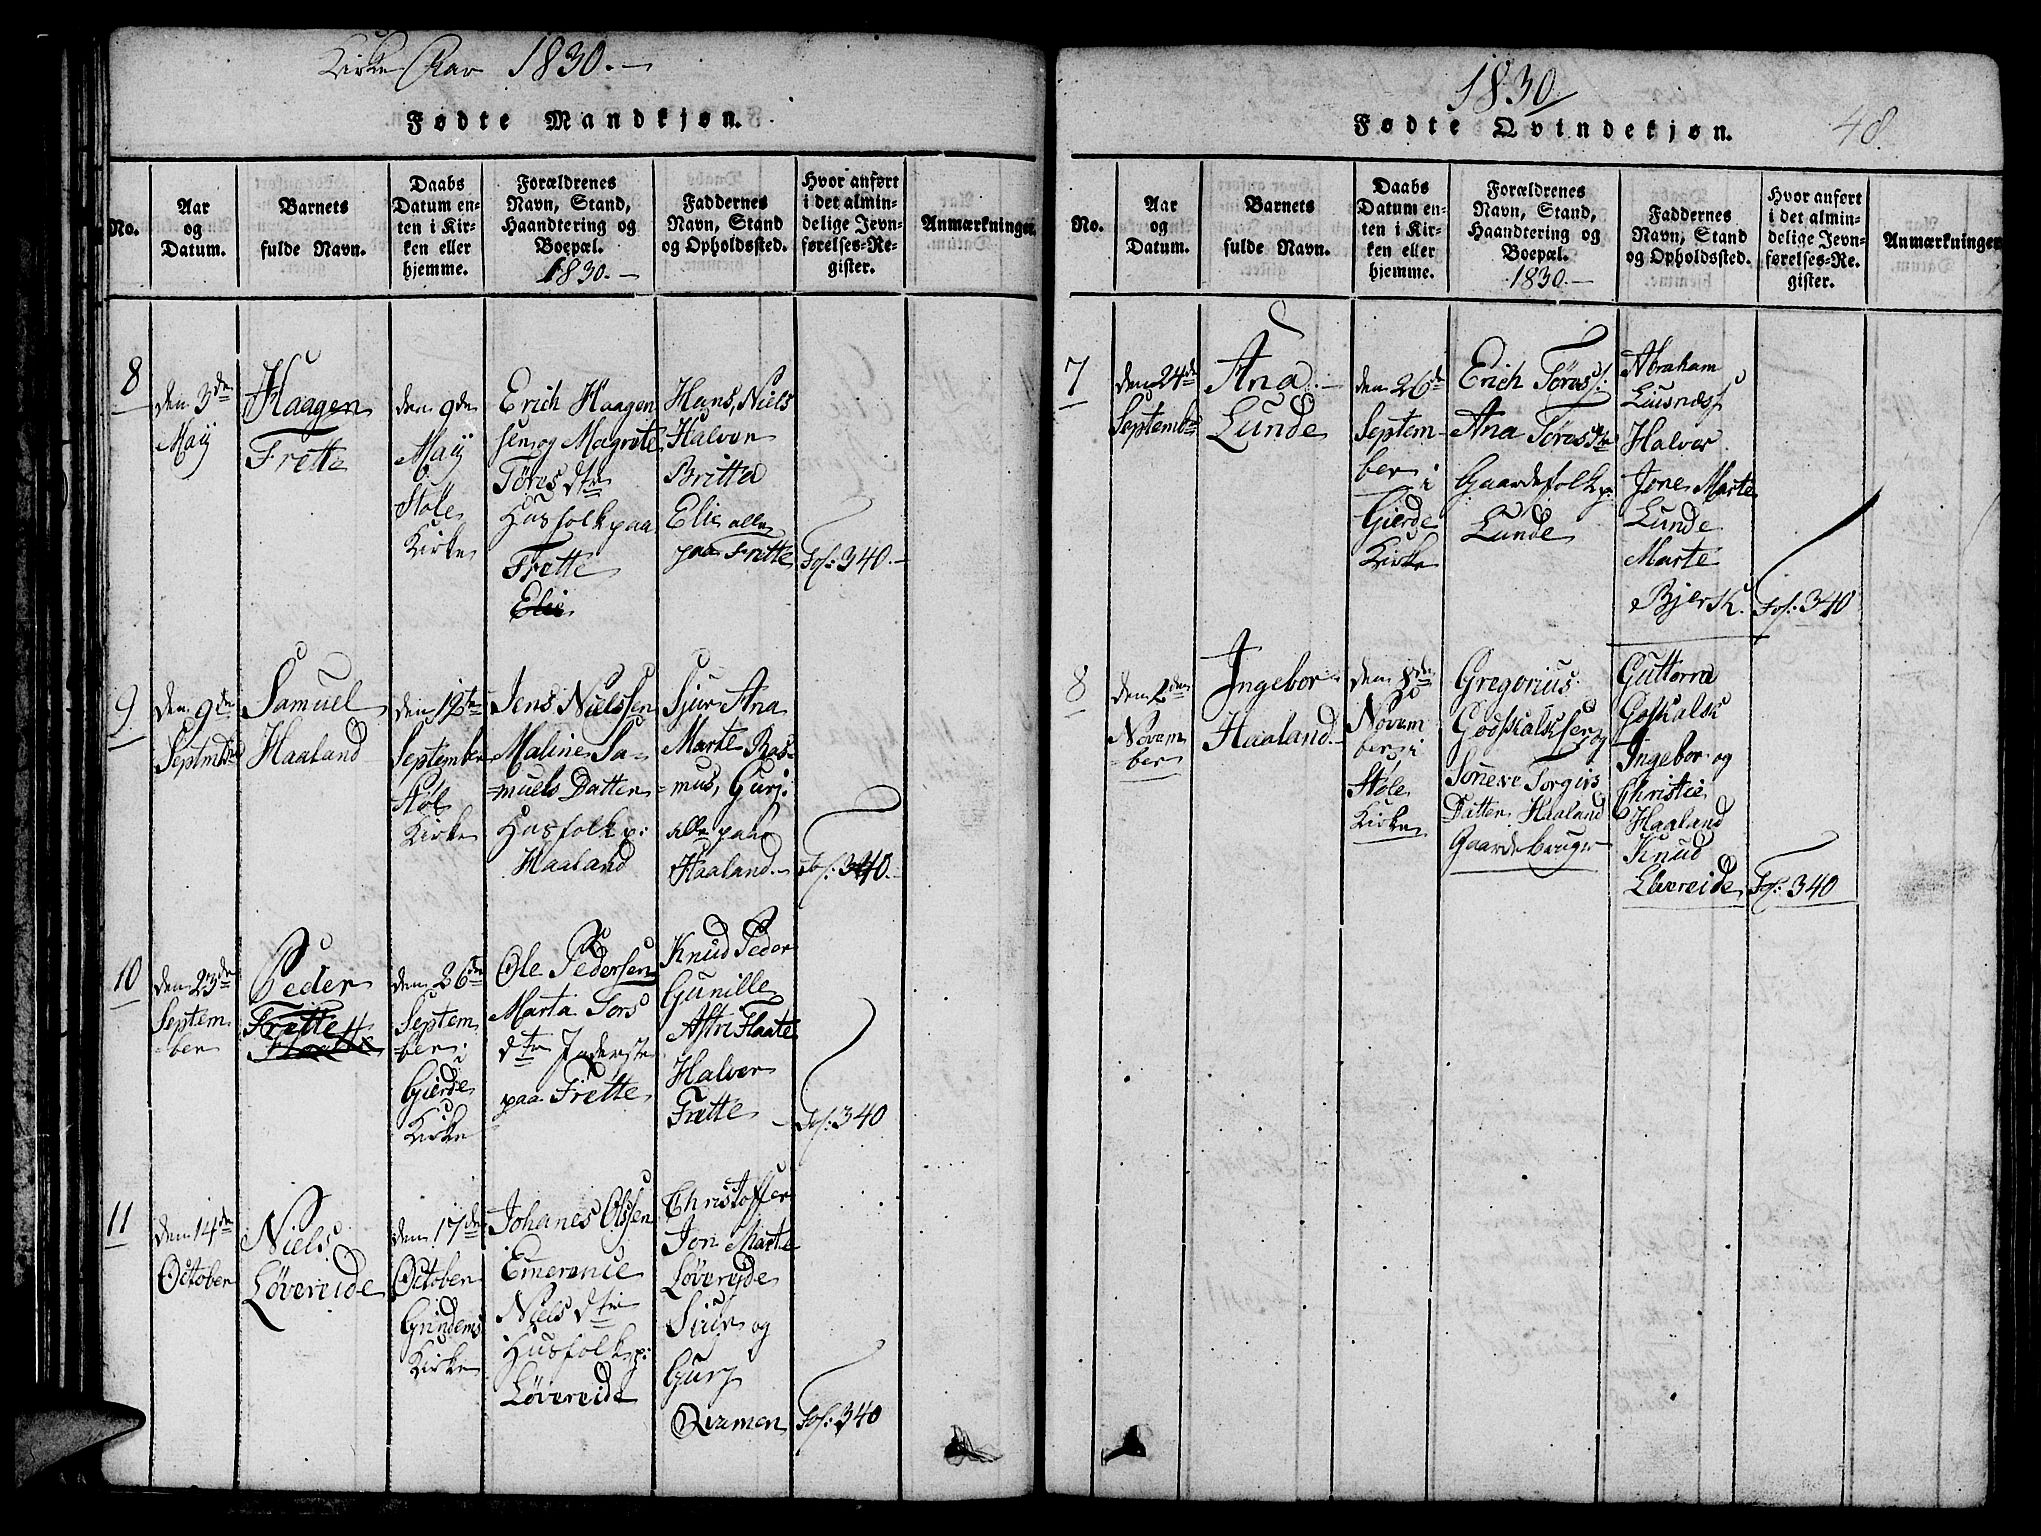 Kirke Aar 1830.—
Fødte Mandkjøn.
No.
Aar
og
Datum.
Barnets
fulde Navn.
Daabs
Datum en-
ten i Kir-
ken eller
hjemme.
Forældrenes
Navn, Stand,
Haandtering og
Boepæl.
1830.—
Faddernes
Navn, Stand
og Opholdssted.
Hvor anført
i det almin-
delige Jevn-
førelses-Re-
gister.
Anmærkninger.
8
den 3de
Maÿ
Haagen
Frette
den 9de
Maÿ
Stole
Kirke
Erich Haagen
sen og Magrete
Tøres dtr
Husfolk paa
Frette
Elie
Hans, Niels
Halvor
Britta
Elie alle
paa Frette
Fol: 340.—
9
den 9de
Septmbr
Samuel
Haaland
den 12te
September
Støl
Kirke
Jens Nielssen
Maline Sa-
=muels Datter
Husfolk p:
Haaland
Sjur Ana
Marte Ras-
=mus, Gurj:
alle paa
Haaland.—
Fol: 340.—
10
den 23de
Septem
=ber
Peder
Frette
Flaatte
den 26de
Septem
ber i
Gierde
Kirke
Ole Pedersen
Marta Tors
dtr
paa Frette
Knud Peder
Gunille
Astri Flaate
Halvor
Frette
Fol: 340
11
den 14de
October
Niels
Løvereide
den 17de
October
Grindems
Kirke
Johanes Olssen
Emerence
Niels dtr
Husfolk p:
Løvereide
Christoffer
Jon Marte
Løvereide
Siur og
Gurj
Qvamen
Fol: 340
1830
Fødte Qvindekjøn.
48.
No.
Aar
og
Datum.
Barnets
fulde Navn.
Daabs
Datum en-
ten i Kir-
ken eller
hjemme.
Forældrenes
Navn, Stand,
Haandtering og
Boepæl.
1830.—
Faddernes
Navn, Stand
og Opholdssted.
Hvor anført
i det almin-
delige Jevn-
førelses-Re-
gister.
Anmærkninger
7
den 24de
Septembr
Ana
Lunde
den 26de
Septem-
ber i
Gierde
Kirke
Erich Tøres
Ana Tøres
Gaardefolk p:
Lunde
Abraham
Halver
Jone Marte
Lunde
Marte
Bjersk.
Fol: 340
8
den 2den
Novem
=ber
Ingebor
Haaland.
den 8de
Novem
ber i
Stole
Kirke
Gregorius
Godskalkssen og
Sørneve Torgirs
Datter Haaland
Gaardebruger
Guttorm
Goskalk
Ingebor og
Christie
Haaland
Knud
Løvereide
Fol: 340